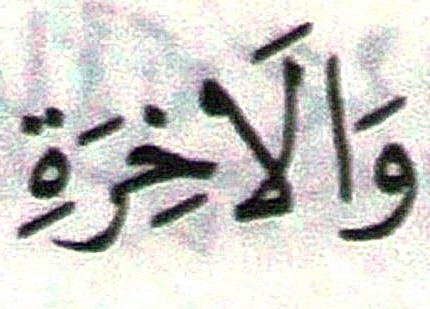 وَالَاخِرَةِ